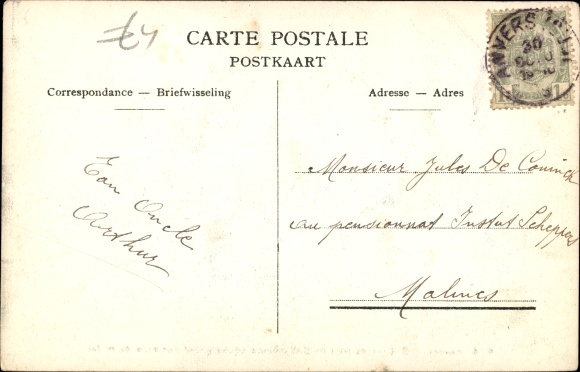 £4
CARTE POSTALE
POSTKAART
Correspondance — Briefwisseling
Adresse — Adres
ANVERS
30
1
Ton Oncle
Arthur
Monsieur Jules De Coninck
au pensionnat Institut Scheppers
Malines